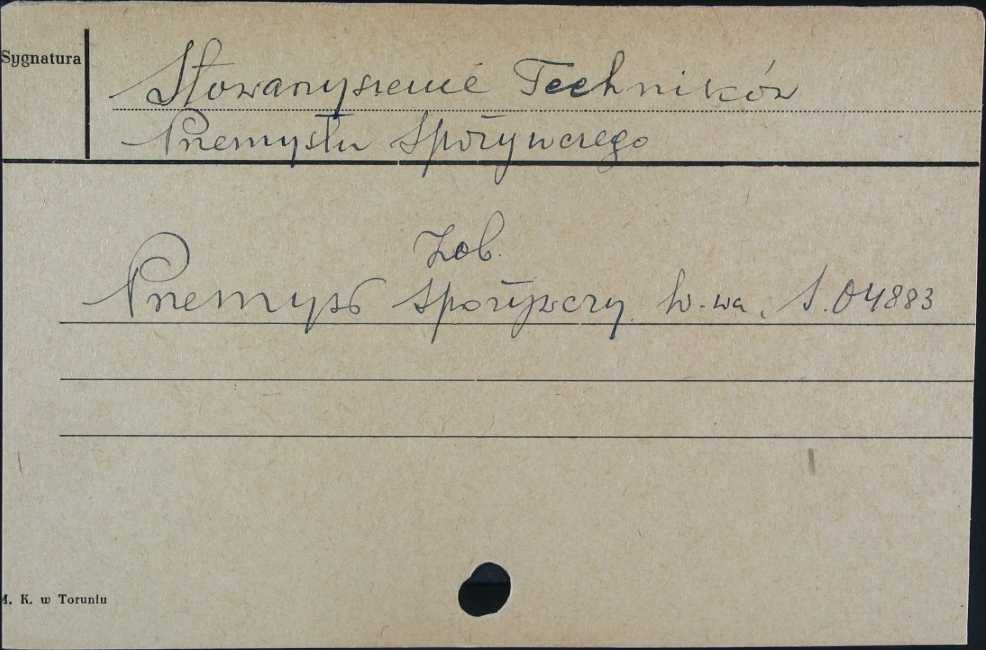 Sygnatura
Stowarzyszenie Techników
Przemysłu Spożywczego
Zob.
Przemysł Spożywczy. W-wa, S.04883
M. K. w Toruniu